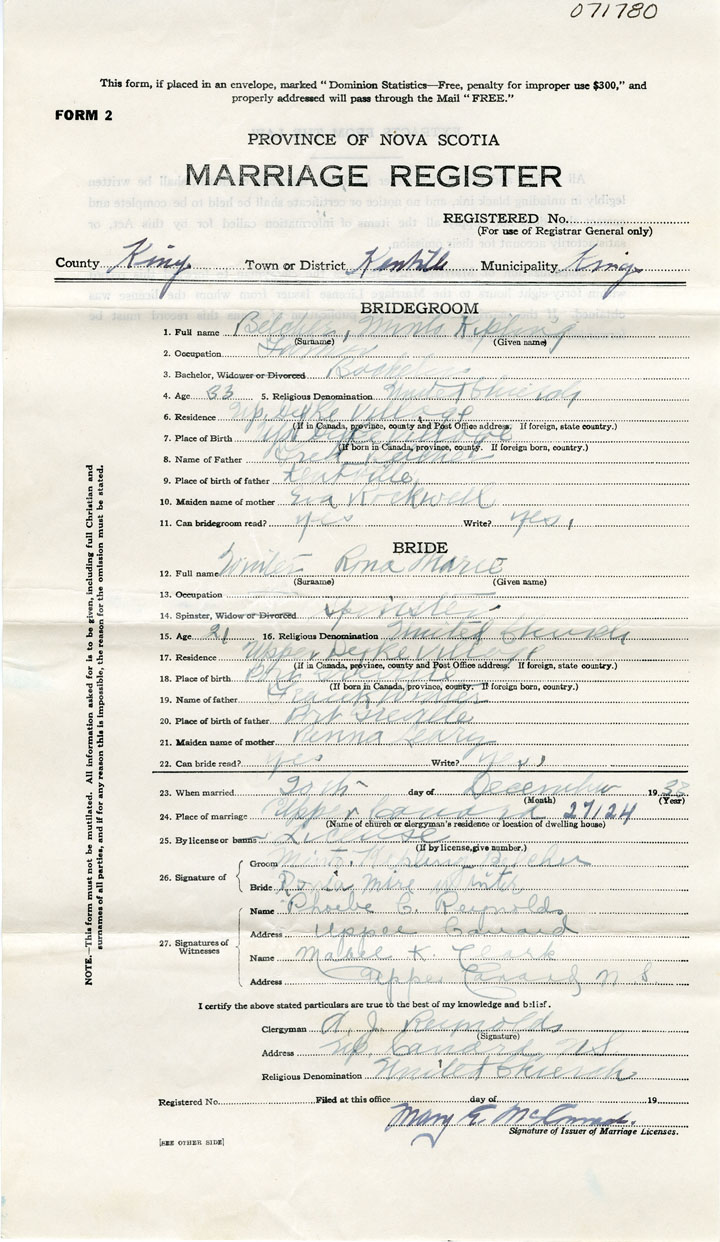 071780
This form, if placed in an envelope, marked "Dominion Statistics—Free, penalty for improper use $300," and
properly addressed will pass through the Mail "FREE."
FORM 2
PROVINCE OF NOVA SCOTIA
MARRIAGE REGISTER
REGISTERED No.
(For use of Registrar General only)
County Kings Town or District Kentville Municipality Kings
BRIDEGROOM
1. Full name Kipling
(Surname) (Given name)
2. Occupation Farmer
3. Bachelor, Widower or Divorced Bachelor
4. Age 33 5. Religious Denomination United Church
6. Residence Up. Dyke Village
(If in Canada, province, county and Post Office address. If foreign, state country.)
7. Place of Birth Up. Dyke Village
(If born in Canada, province, county. If foreign born, country.)
8. Name of Father
9. Place of birth of father Kentville
10. Maiden name of mother Eva Rockwell
11. Can bridegroom read? yes Write? yes
BRIDE
12. Full name Winter Rona Marie
(Surname) (Given name)
13. Occupation
14. Spinster, Widow or Divorced Spinster
15. Age 21 16. Religious Denomination United Church
17. Residence Upper Dyke Village
(If in Canada, province, county and Post Office address. If foreign, state country.)
18. Place of birth
(If born in Canada, province, county. If foreign born, country.)
19. Name of father
20. Place of birth of father Port Greville
21. Maiden name of mother Leary
22. Can bride read? yes Write? yes
23. When married day of December 1933
(Month) (Year)
24. Place of marriage Upper Canard 27124
(Name of church or clergyman's residence or location of dwelling house)
25. By license or banns License
(If by license, give number.)
26. Signature of
Groom Kipling
Bride Winter
27. Signatures of Witnesses
Name Phoebe C. Reynolds
Address Upper Canard
Name Mabel K. Clark
Address Upper Canard N.S.
I certify the above stated particulars are true to the best of my knowledge and belief.
Clergyman A. J. Reynolds
(Signature)
Address Up. Canard N.S.
Religious Denomination United Church
Registered No. Filed at this office day of 19
Mary E.
Signature of Issuer of Marriage Licenses.
[SEE OTHER SIDE]
NOTE.—This form must not be mutilated. All information asked for is to be given, including full Christian and
surnames of all parties, and if for any reason this is impossible, the reason for the omission must be stated.